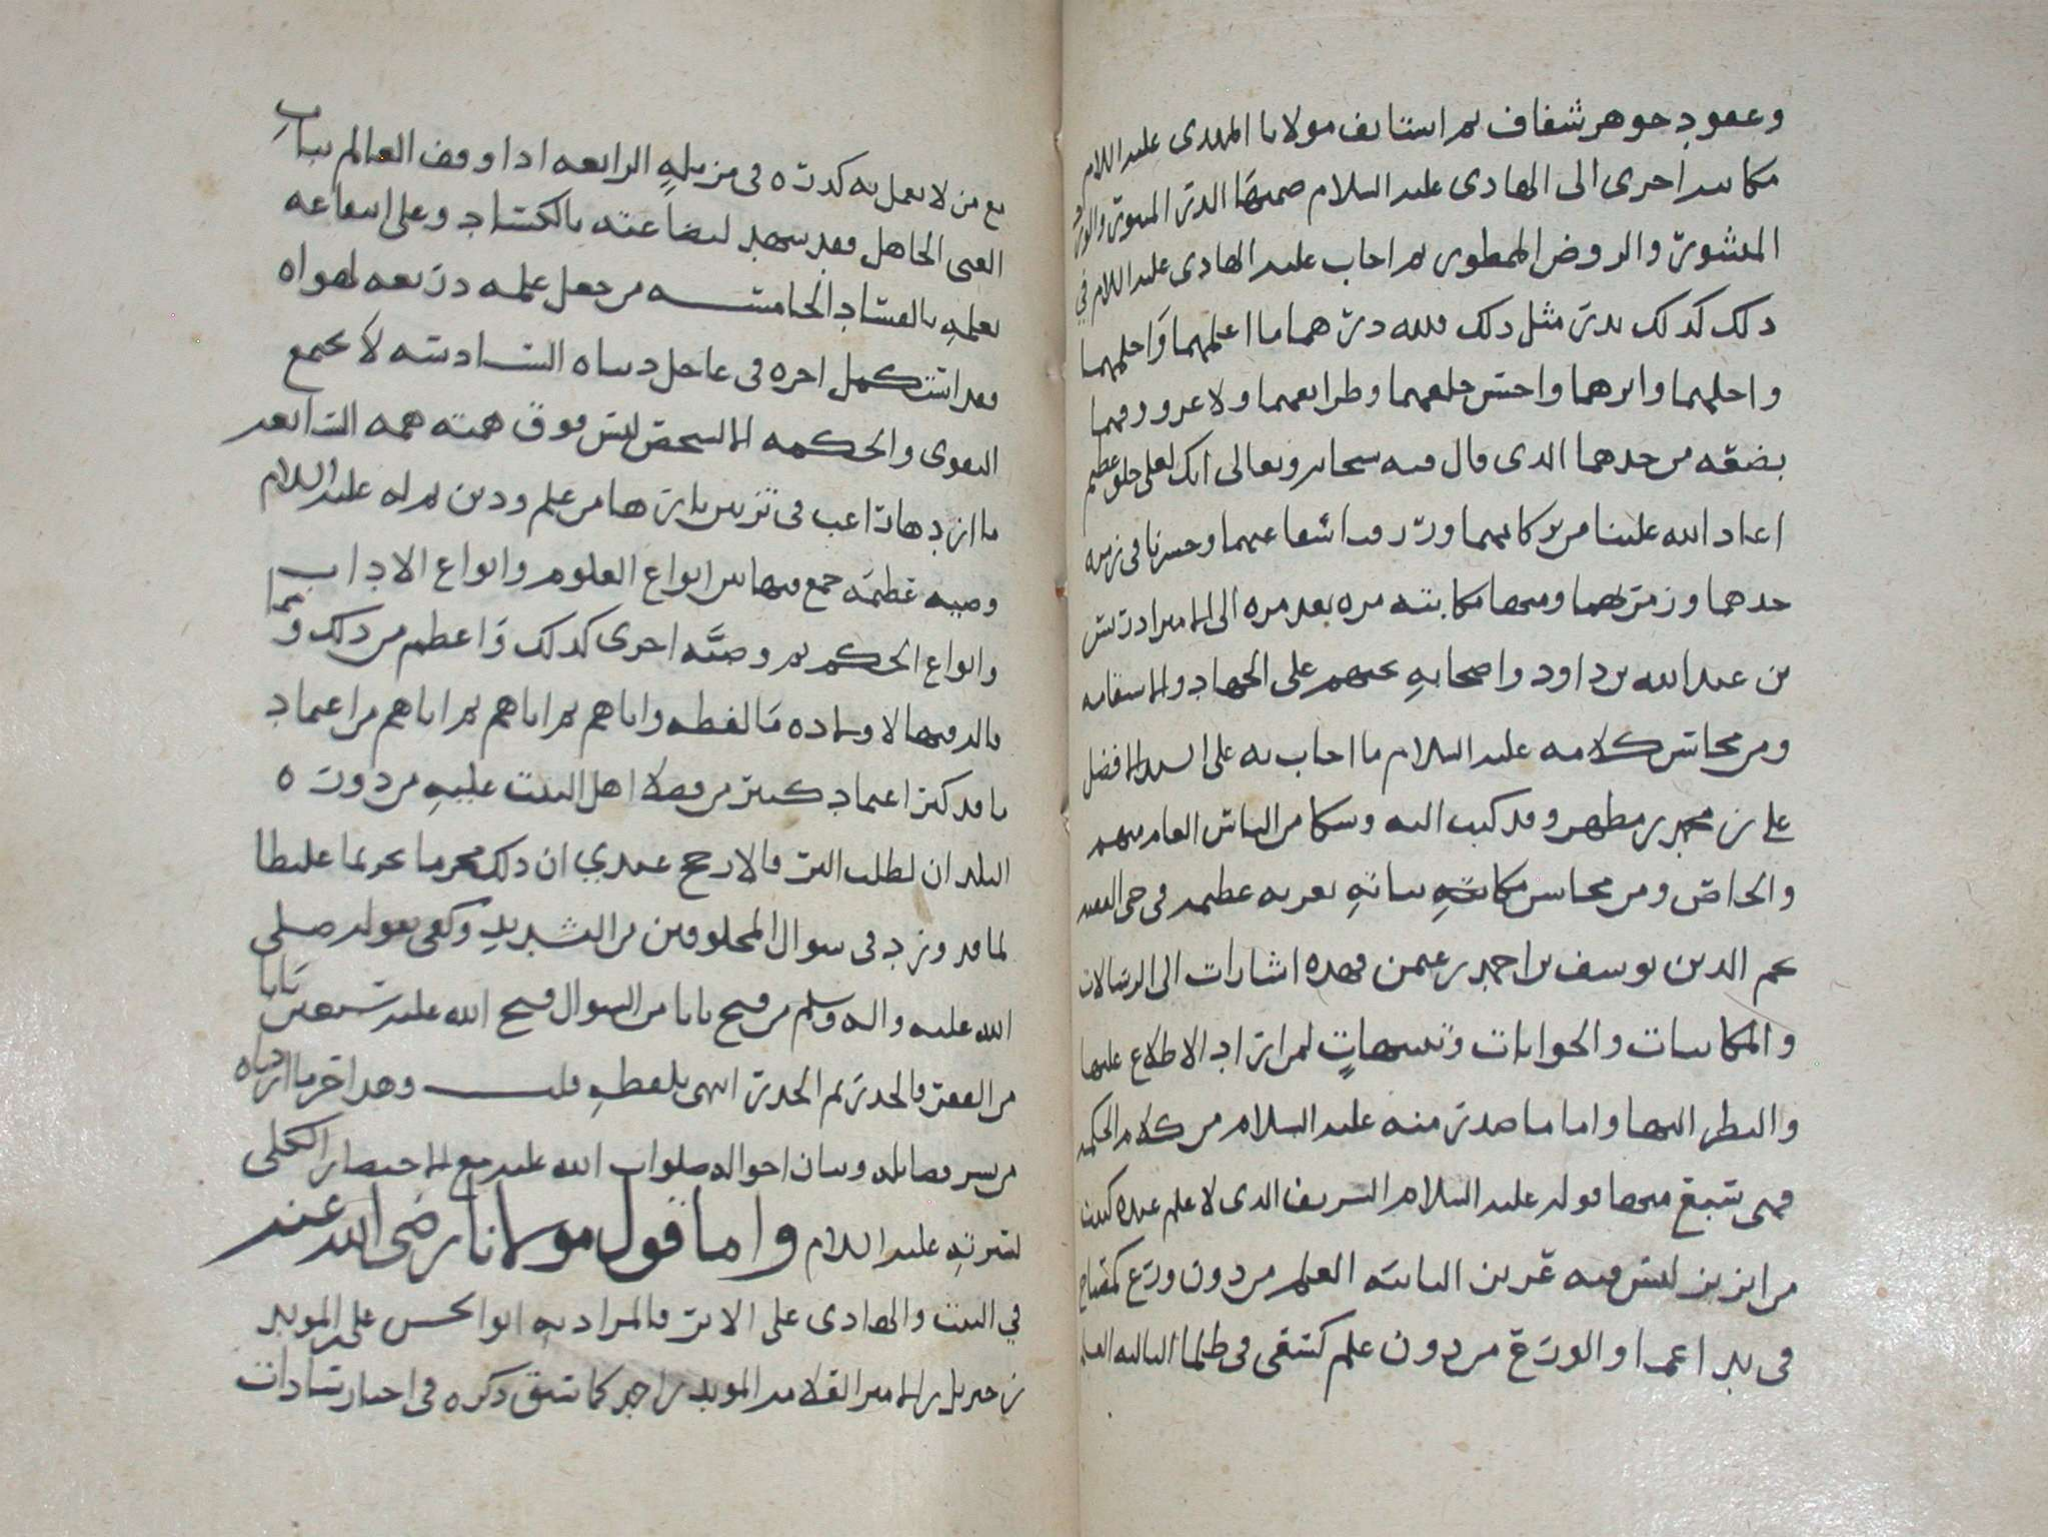 وعقود جوهر شفاف ثم استانف مولانا المهدى عليه السلام
مكاتبه اخرى الى الهادى عليه السلام ضمنها الدر المنثور والوشي
المنشور والروض الممطور ثم اجاب عليه الهادى عليه السلام في
ذلك كذلك بدر مثل ذلك فلله درهما ما اعلمهما واحلمهما
واجلهما وابرهما واحسن خلقهما وطرايقهما ولا غرو فهما
بضعه من جدهما الذى قال فيه سبحانه وتعالى انك لعلى خلق عظيم
اعاد الله علينا من بركاتهما ورزقنا شفاعتهما وحشرنا فى زمره
جدهما وزمرتهما ومنها مكاتبته مره بعد مره الى الامير ادريس
بن عبد الله بن داود واصحابه يحثهم على الجهاد والاستقامه
ومن محاسن كلامه عليه السلام ما اجاب به على السيد الافضل
علي بن محمد بن مطهر وقد كتب اليه وشكا من الناس العام منهم
والخاص ومن محاسن مكاتباته تعزيه عظيمه فى حى الفقيه
نجم الدين يوسف بن احمد بن عثمن فهذه اشارات الى الرسالات
والمكاتبات والجوابات وتنبيهات لمن اراد الاطلاع عليها
والنظر اليها واما ما صدر منه عليه السلام من كلام الحكمه
فهى سبع منها قوله عليه السلام الشريف الذى لا علم عنده كبيت
من ابريز ليس فيه عرين الثانيه العلم من دون ورع كمصباح
فى يد اعمى او الورع من دون علم كسقى فى ظلما الثالثه العلم
مع من لا يعمل به كدره فى مزبله الرابعه اذا وقف العالم بباب
الغنى الجاهل فقد شهد لبضاعته بالكساد وعلى انتفاعه
بعلمه بالفساد الخامسه من جعل علمه ذريعه لهواه
فقد استكمل اجره فى عاجل دنياه السادسه لا يجمع
التقوى والحكمه الا شخص ليس فوق همته همه السابعه
ما ازدها راغب فى تزيين بازينها من علم ودين ثم له عليه السلام
وصيه عظيمه جمع فيها من انواع العلوم وانواع الاداب
وانواع الحكم ثم وصيه اخرى كذلك واعظم من ذلك ومما
قاله فيها لاولاده ما لفظه واياهم ثم اياهم ثم اياهم من اعتماد
ما قد كثر اعتماد كثير من فضلا اهل البيت عليه من دوره
البلدان لطلب البر فالارجح عندي ان ذلك محرما تحريما غليظا
لما قد ورد فى سوال المخلوقين من التشديد وكفى بقوله صلى
الله عليه واله وسلم من فتح بابا من السوال فتح الله عليه سبعين بابا
من الفقر فالحذر ثم الحذر انتهى بلفظه قلت وهذا اخر ما اردناه
من يسير فضايله وبيان احواله صلوات الله عليه مع الاختصار الكلى
لسيرته عليه السلام واما قول مولانا رضى الله عنه
في البيت والهادى على الاثر فالمراد به ابو الحسن علي بن المويد
بن جبريل بن الامير القلامه المويد بن احمد كما سبق ذكره فى اخبار سادات